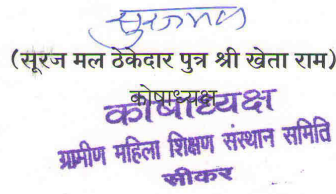 सूरजमल
(सूरज मल ठेकेदार पुत्र श्री खेता राम)
कोषाध्यक्ष
कोषाध्यक्ष
ग्रामीण महिला शिक्षण संस्थान समिति
सीकर